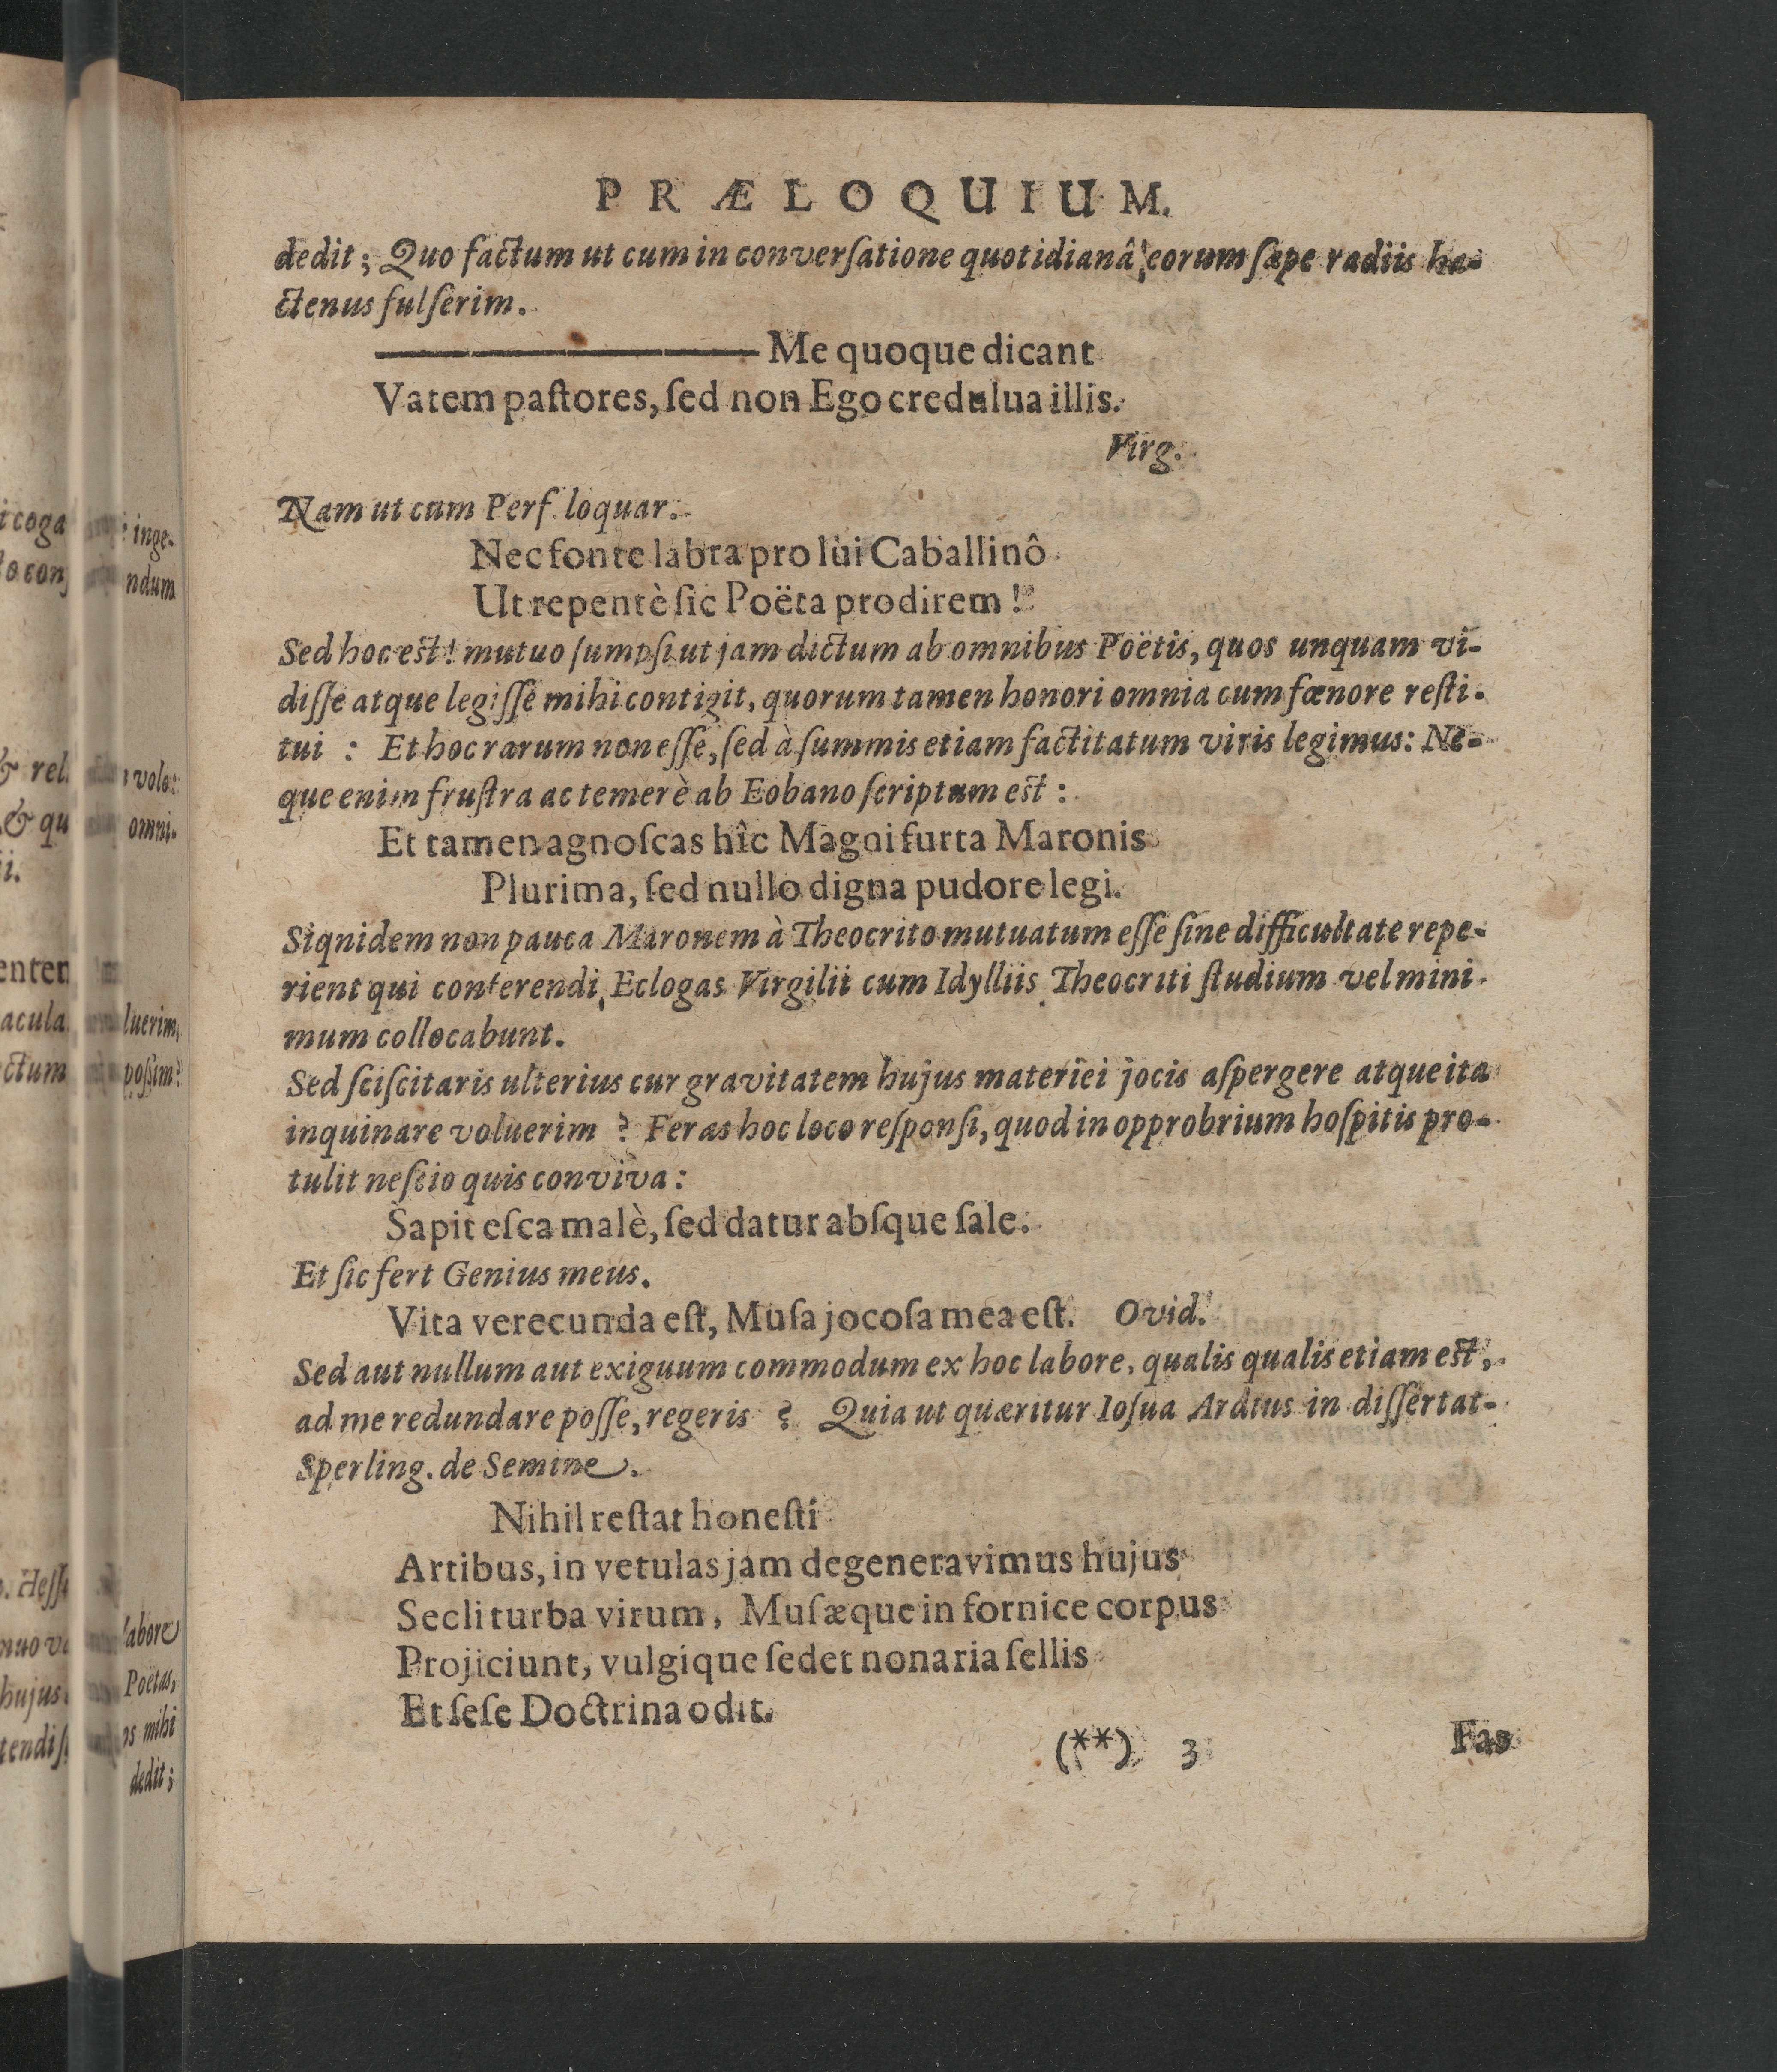 PRÆLOQUIUM.
dedit; Quo factum ut cum in converſatione quotidianâ, eorum ſæpe radiis ha-
ctenus fulſerim.
Me quoque dicant
Vatem paſtores, ſed non Ego credulua illis.
Virg.
Nam ut cum Perſ. loquar.
Nec fonte labra prolùi Caballinô
Ut repentè ſic Poëta prodirem!
Sed hoc est! mutuo ſumpſi ut jam dictum ab omnibus Poëtis, quos unquam vi-
diſſe atque legiſſe mihi contigit, quorum tamen honori omnia cum fœnore reſti-
tui : Et hoc rarum non eſſe, ſed à ſummis etiam factitatum viris legimus: Ne-
que enim fruſtra ac temerè ab Eobano ſcriptum est :
Et tamen agnoſcas hîc Magni furta Maronis
Plurima, ſed nullo digna pudore legi.
Siqnidem non pauca Maronem à Theocrito mutuatum eſſe ſine difficultate repe-
rient qui conferendi Eclogas Virgilii cum Idylliis Theocriti ſtudium vel mini-
mum collocabunt.
Sed ſciſcitaris ulterius cur gravitatem hujus materiei jocis aſpergere atque ita
inquinare voluerim ? Feras hoc loco reſponſi, quod in opprobrium hoſpitis pro-
tulit neſcio quis conviva:
Sapit eſca malè, ſed datur abſque ſale.
Et ſic fert Genius meus.
Vita verecunda eſt, Muſa jocoſa mea eſt. Ovid.
Sed aut nullum aut exiguum commodum ex hoc labore, qualis qualis etiam est,
ad me redundare poſſe, regeris ? Quia ut quæritur Ioſua Ardtus in diſſertat-
Sperling. de Semine.
Nihil reſtat honeſti
Artibus, in vetulas jam degeneravimus hujus
Secli turba virum, Muſæque in fornice corpus
Projiciunt, vulgique ſedet nonaria ſellis
Et ſeſe Doctrina odit.
(**) 3
Fas
inge-
ndum
volo:
omni-
luerim,
poſſim?
labore
Poëtas,
mihi
dedit;